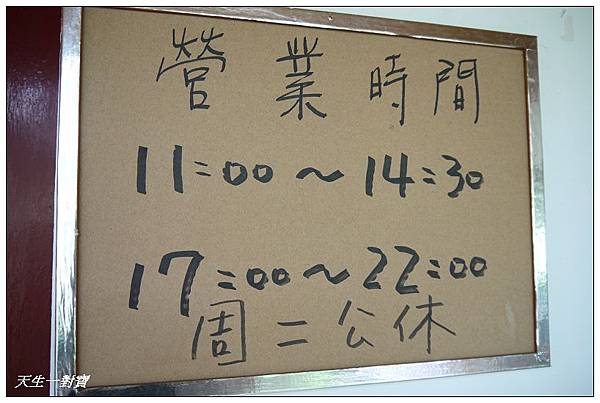 營業時間
11:00～14:30
17:00～22:00
周二公休
天生一對寶